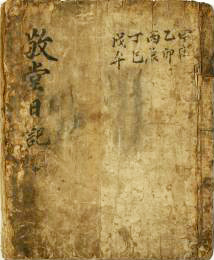 甲寅
乙卯
丙辰
丁巳
戊午
敬堂日記